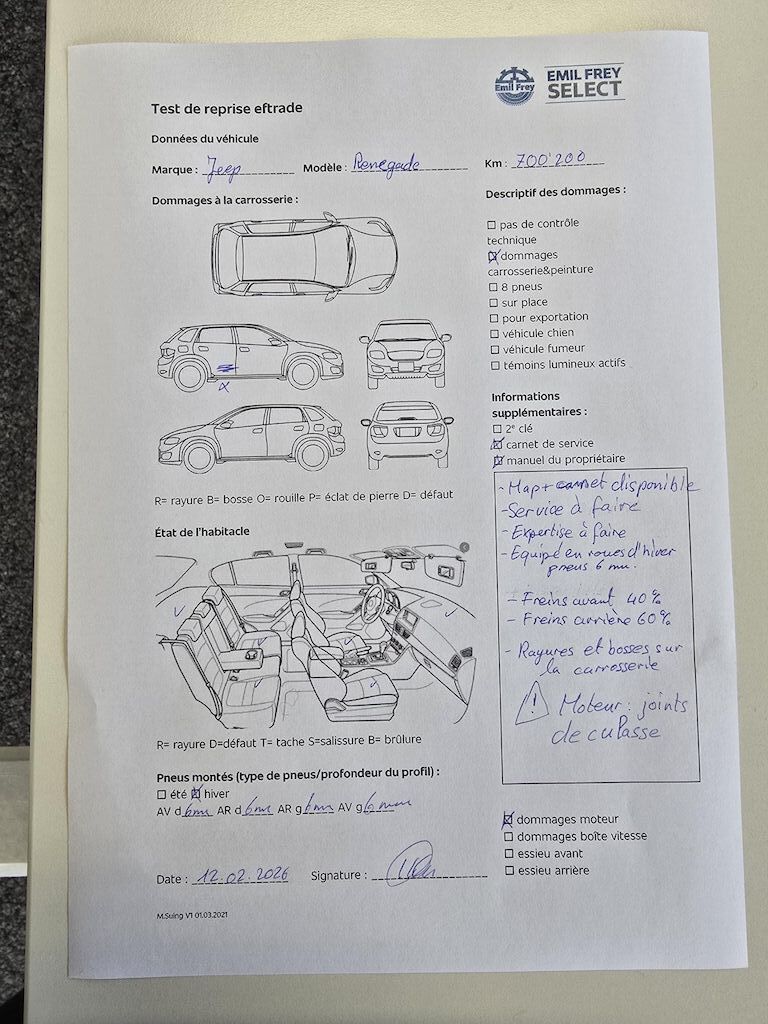 Emil Frey
EMIL FREY
SELECT
Test de reprise eftrade
Données du véhicule
Marque : Jeep Modèle : Renegade Km : 700'200
Dommages à la carrosserie :
Descriptif des dommages :
☐ pas de contrôle
technique
☒ dommages
carrosserie&peinture
☐ 8 pneus
☐ sur place
☐ pour exportation
☐ véhicule chien
☐ véhicule fumeur
☐ témoins lumineux actifs
x
R= rayure B= bosse O= rouille P= éclat de pierre D= défaut
Informations
supplémentaires :
☐ 2e clé
☒ carnet de service
☒ manuel du propriétaire
- Map + carnet disponible
- Service à faire
- Expertise à faire
- Equipé en roues d'hiver
pneus 6 mm.
- Freins avant 40%
- Freins arrière 60%
- Rayures et bosses sur
la carrosserie
⚠ Moteur : joints
de culasse
État de l'habitacle
R= rayure D=défaut T= tache S=salissure B= brûlure
Pneus montés (type de pneus/profondeur du profil) :
☐ été ☒ hiver
AV d 6mm AR d 6mm AR g 6mm AV g 6mm
☒ dommages moteur
☐ dommages boîte vitesse
☐ essieu avant
☐ essieu arrière
Date : 12.02.2026 Signature :
M.Suing V1 01.03.2021